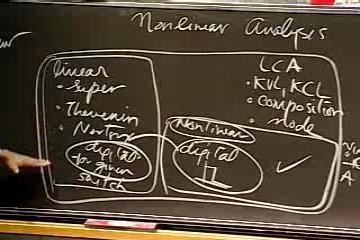 Nonlinear Analysis
linear
• Super
• Thevenin
• Norton
digital
for given
switch
LCA
• KVL, KCL
• composition
• node
Nonlinear
digital